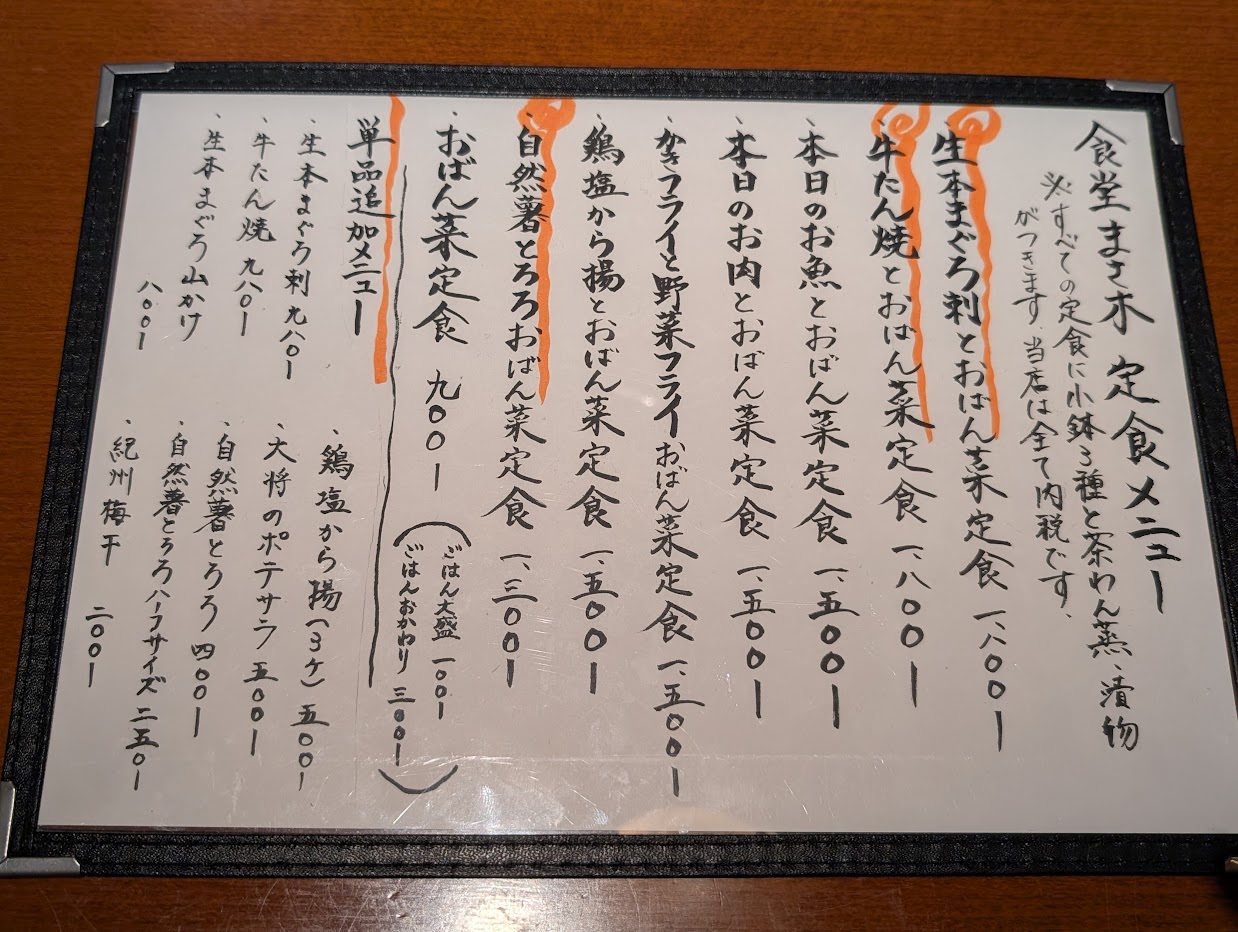 食堂まさ木 定食メニュー
※すべての定食に小鉢3種と茶わん蒸、漬物
がつきます。当店は全て内税です。
、生本まぐろ刺とおばん菜定食 一、八〇〇ー
、牛たん焼とおばん菜定食 一、八〇〇ー
、本日のお魚とおばん菜定食 一、五〇〇ー
、本日のお肉とおばん菜定食 一、五〇〇ー
、かきフライと野菜フライおばん菜定食 一、五〇〇ー
、鶏塩から揚とおばん菜定食 一、五〇〇ー
、自然薯とろろおばん菜定食 一、三〇〇ー
、おばん菜定食 九〇〇ー
(ごはん大盛 一〇〇ー
ごはんおかわり 三〇〇ー)
単品追加メニュー
、生本まぐろ刺 九八〇ー
、牛たん焼 九八〇ー
、生本まぐろ山かけ
八〇〇ー
、鶏塩から揚(3ケ) 五〇〇ー
、大将のポテサラ 五〇〇ー
、自然薯とろろ 四〇〇ー
、自然薯とろろハーフサイズ 二五〇ー
、紀州梅干 二〇〇ー